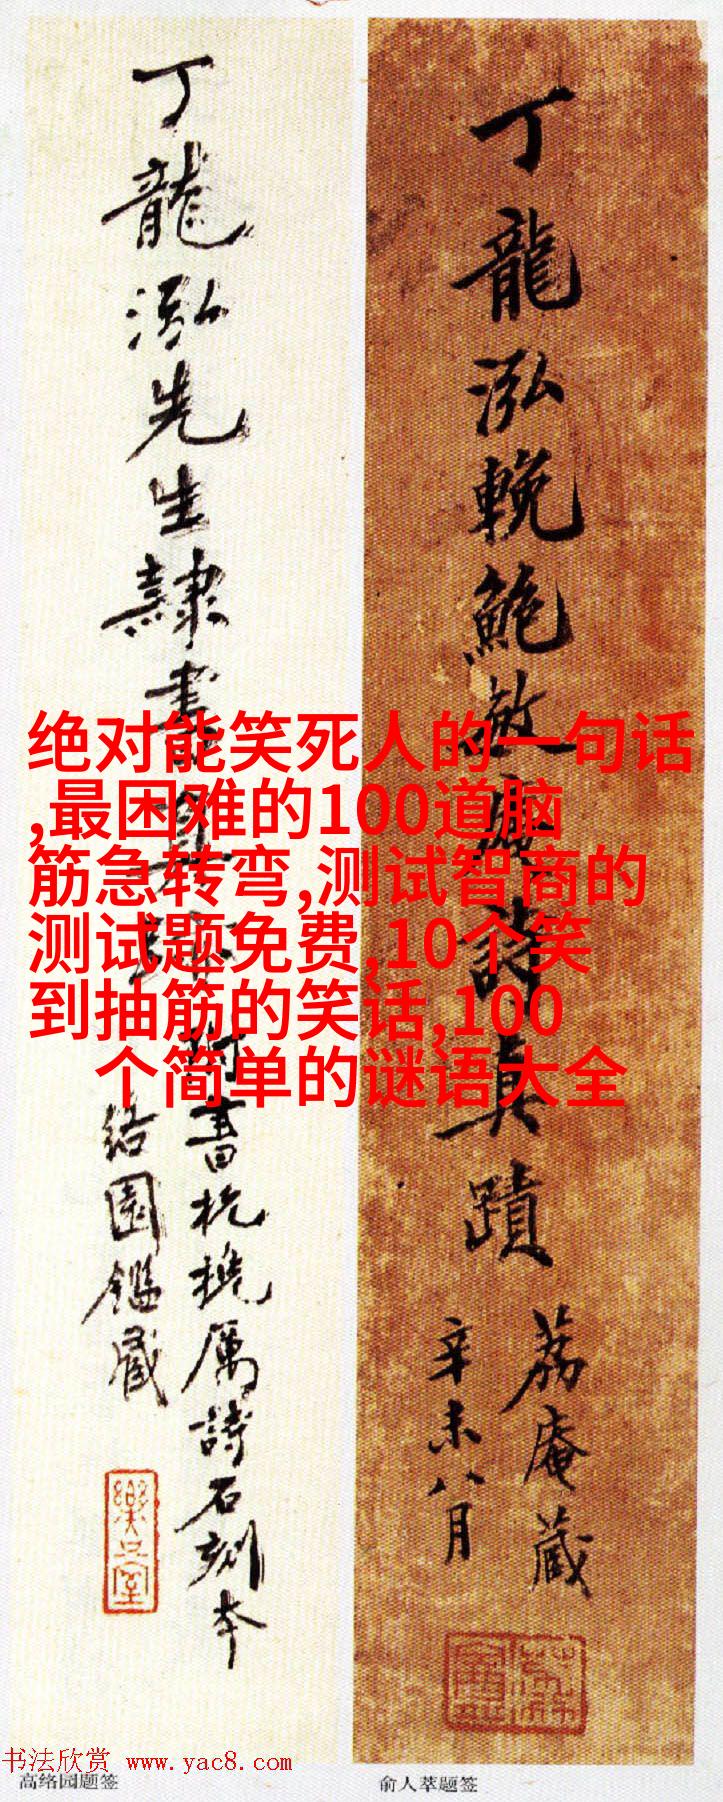 丁龍泓先生隸書
附書杭搋厲詩石刻本
絡園鑑藏
樂只室
丁龍泓輓鮑
詩真蹟
荔庵藏
辛未八月
绝对能笑死人的一句话
,最困难的100道脑
筋急转弯,测试智商的
测试题免费,10个笑
到抽筋的笑话,100
个简单的谜语大全
书法欣赏 www.yac8.com
高络园题签
俞人萃题签